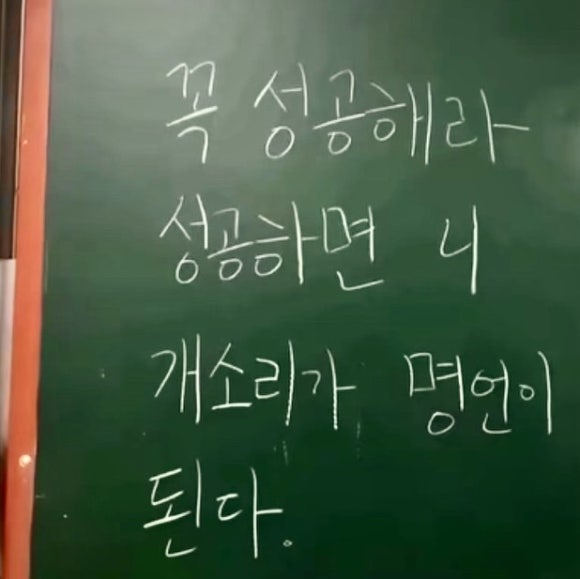 꼭 성공해라
성공하면 니
개소리가 명언이
된다.